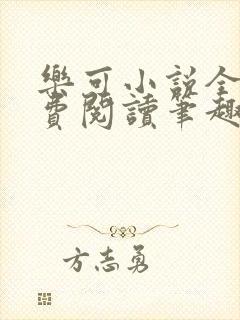 樂可小說全
費閱讀筆趣
方志勇